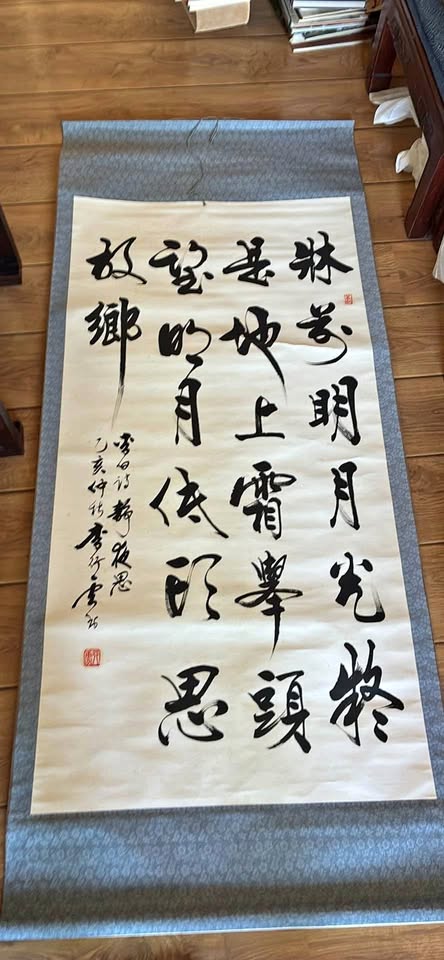 牀前明月光疑
是地上霜舉頭
望明月低頭思
故鄉
李白詩靜夜思
乙亥仲秋李行雲